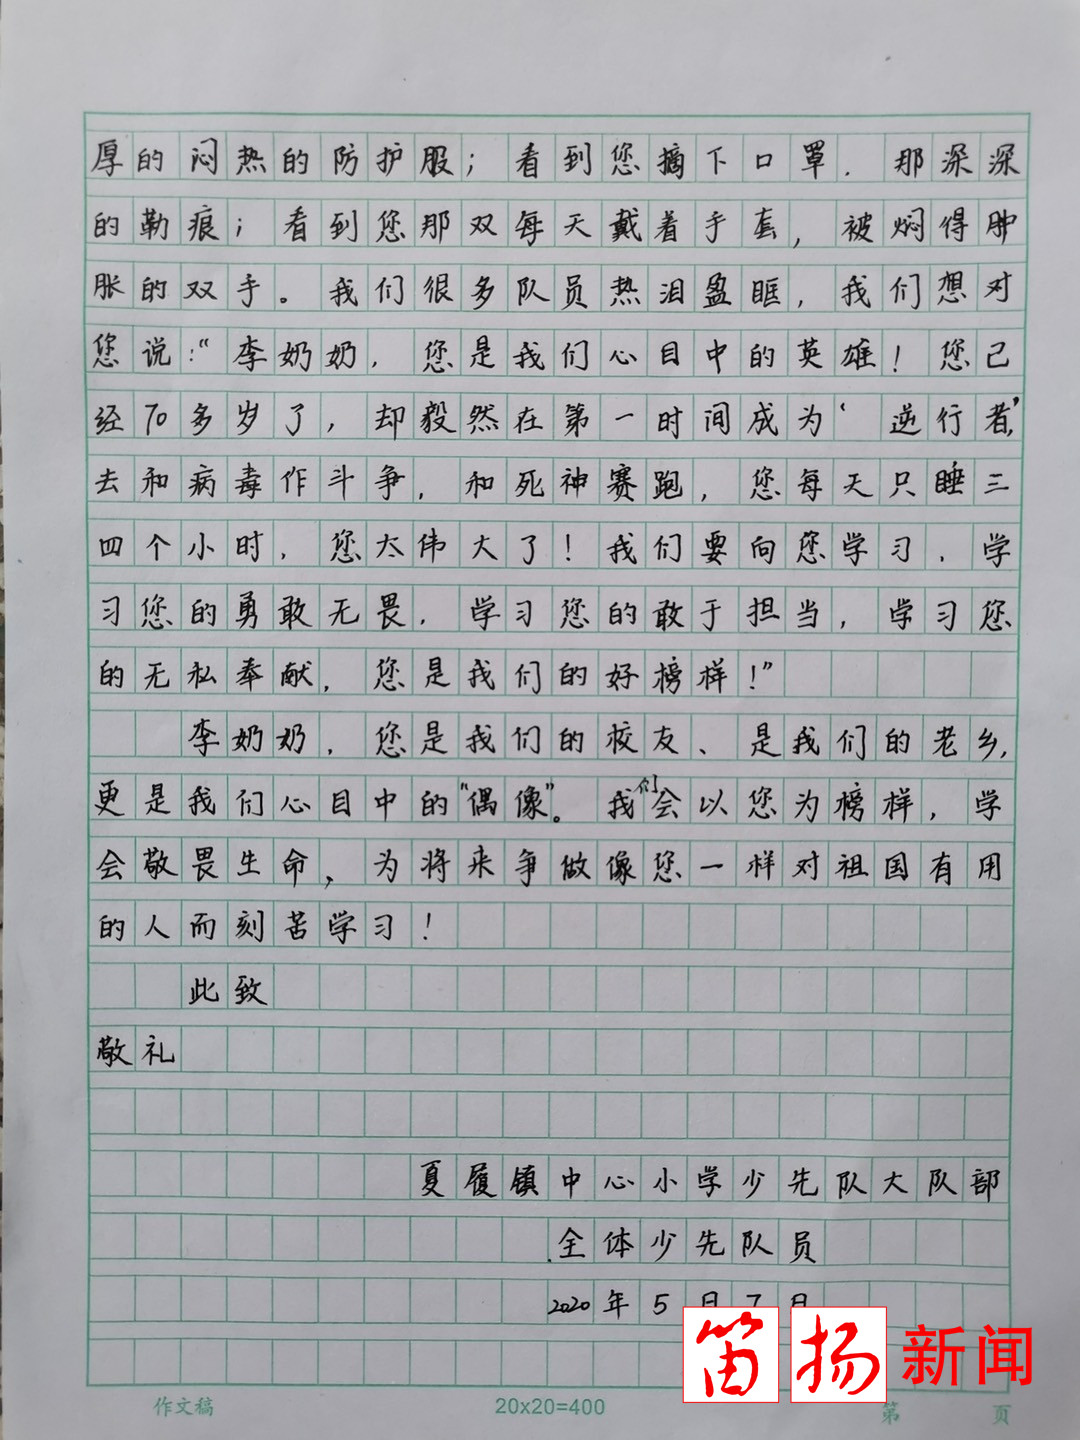 厚的闷热的防护服；看到您摘下口罩，那深深
的勒痕；看到您那双每天戴着手套，被焖得肿
胀的双手。我们很多队员热泪盈眶，我们想对
您说：“李奶奶，您是我们心目中的英雄！您已
经70多岁了，却毅然在第一时间成为‘逆行者’，
去和病毒作斗争，和死神赛跑，您每天只睡三
四个小时，您太伟大了！我们要向您学习，学
习您的勇敢无畏，学习您的敢于担当，学习您
的无私奉献，您是我们的好榜样！”
李奶奶，您是我们的校友、是我们的老乡，
更是我们心目中的“偶像”。我们会以您为榜样，学
会敬畏生命，为将来争做像您一样对祖国有用
的人而刻苦学习！
此致
敬礼
夏履镇中心小学少先队大队部
全体少先队员
2020年5月7日
笛扬新闻
作文稿 20x20=400 第 页